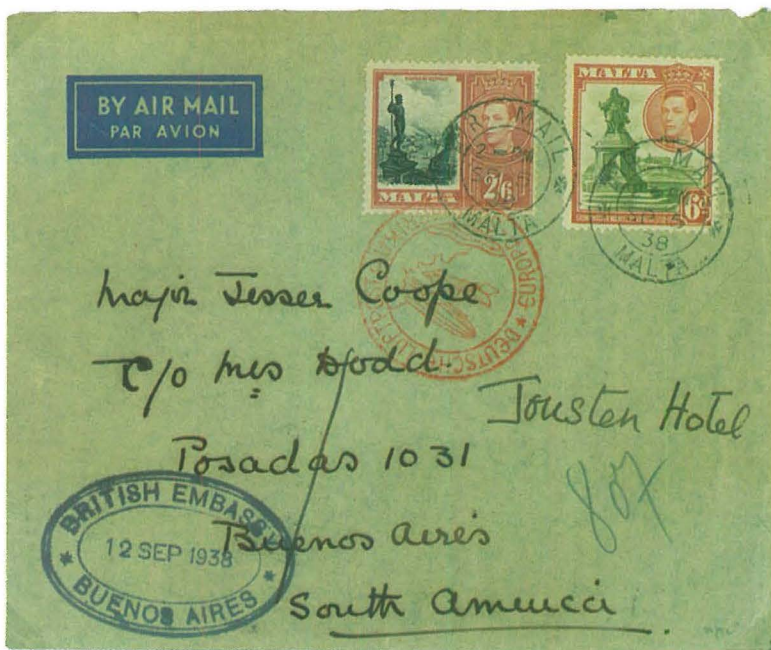 BY AIR MAIL
PAR AVION
MALTA
2/6
MALTA
6D
AIR MAIL
12 - PM
MALTA
AIR MAIL
SP 5
38
MALTA
DEUTSCHE
EUROPA
Major Jesser Coope
c/o Mrs Dodd.
Jousten Hotel
Posadas 1031
807
Buenos Aires
South America
BRITISH EMBASSY
12 SEP 1938
BUENOS AIRES